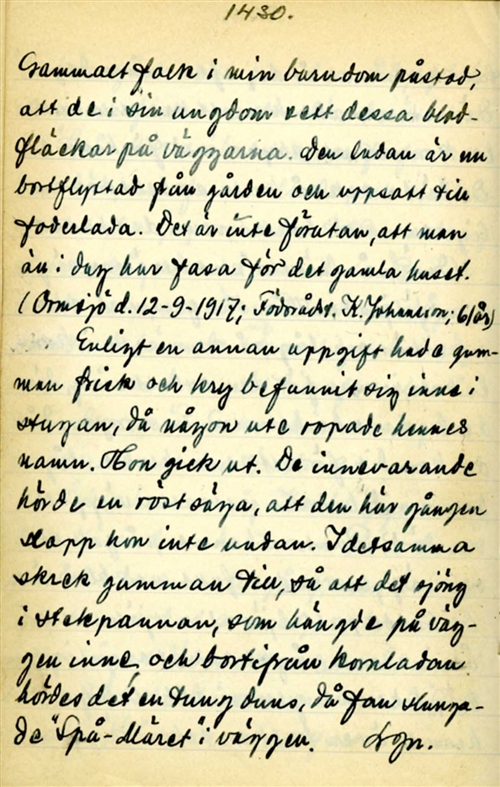 1430.
Gammalt folk i min barndom påstod,
att de i sin ungdom sett dessa blod-
fläckar på väggarna. Den ladan är nu
bortflyttad från gården och uppsatt till
foderlada. Det är inte förutan, att man
än i dag har fasa för det gamla huset.
(Ormsjö d. 12-9-1917; Födorådst. K. Johansson; 61 år)
Enligt en annan uppgift hade gum-
man frisk och kry befunnit sig inne i
stugan, då någon ute ropade hennes
namn. Hon gick ut. De innevarande
hörde en röst säga, att den här gången
slapp hon inte undan. I detsamma
skrek gumman till, så att det sjöng
i stekpannan, som hängde på väg-
gen inne, och bortifrån kornladan
hördes det en tung duns, då fan slunga-
de "Spå-Märet" i väggen.